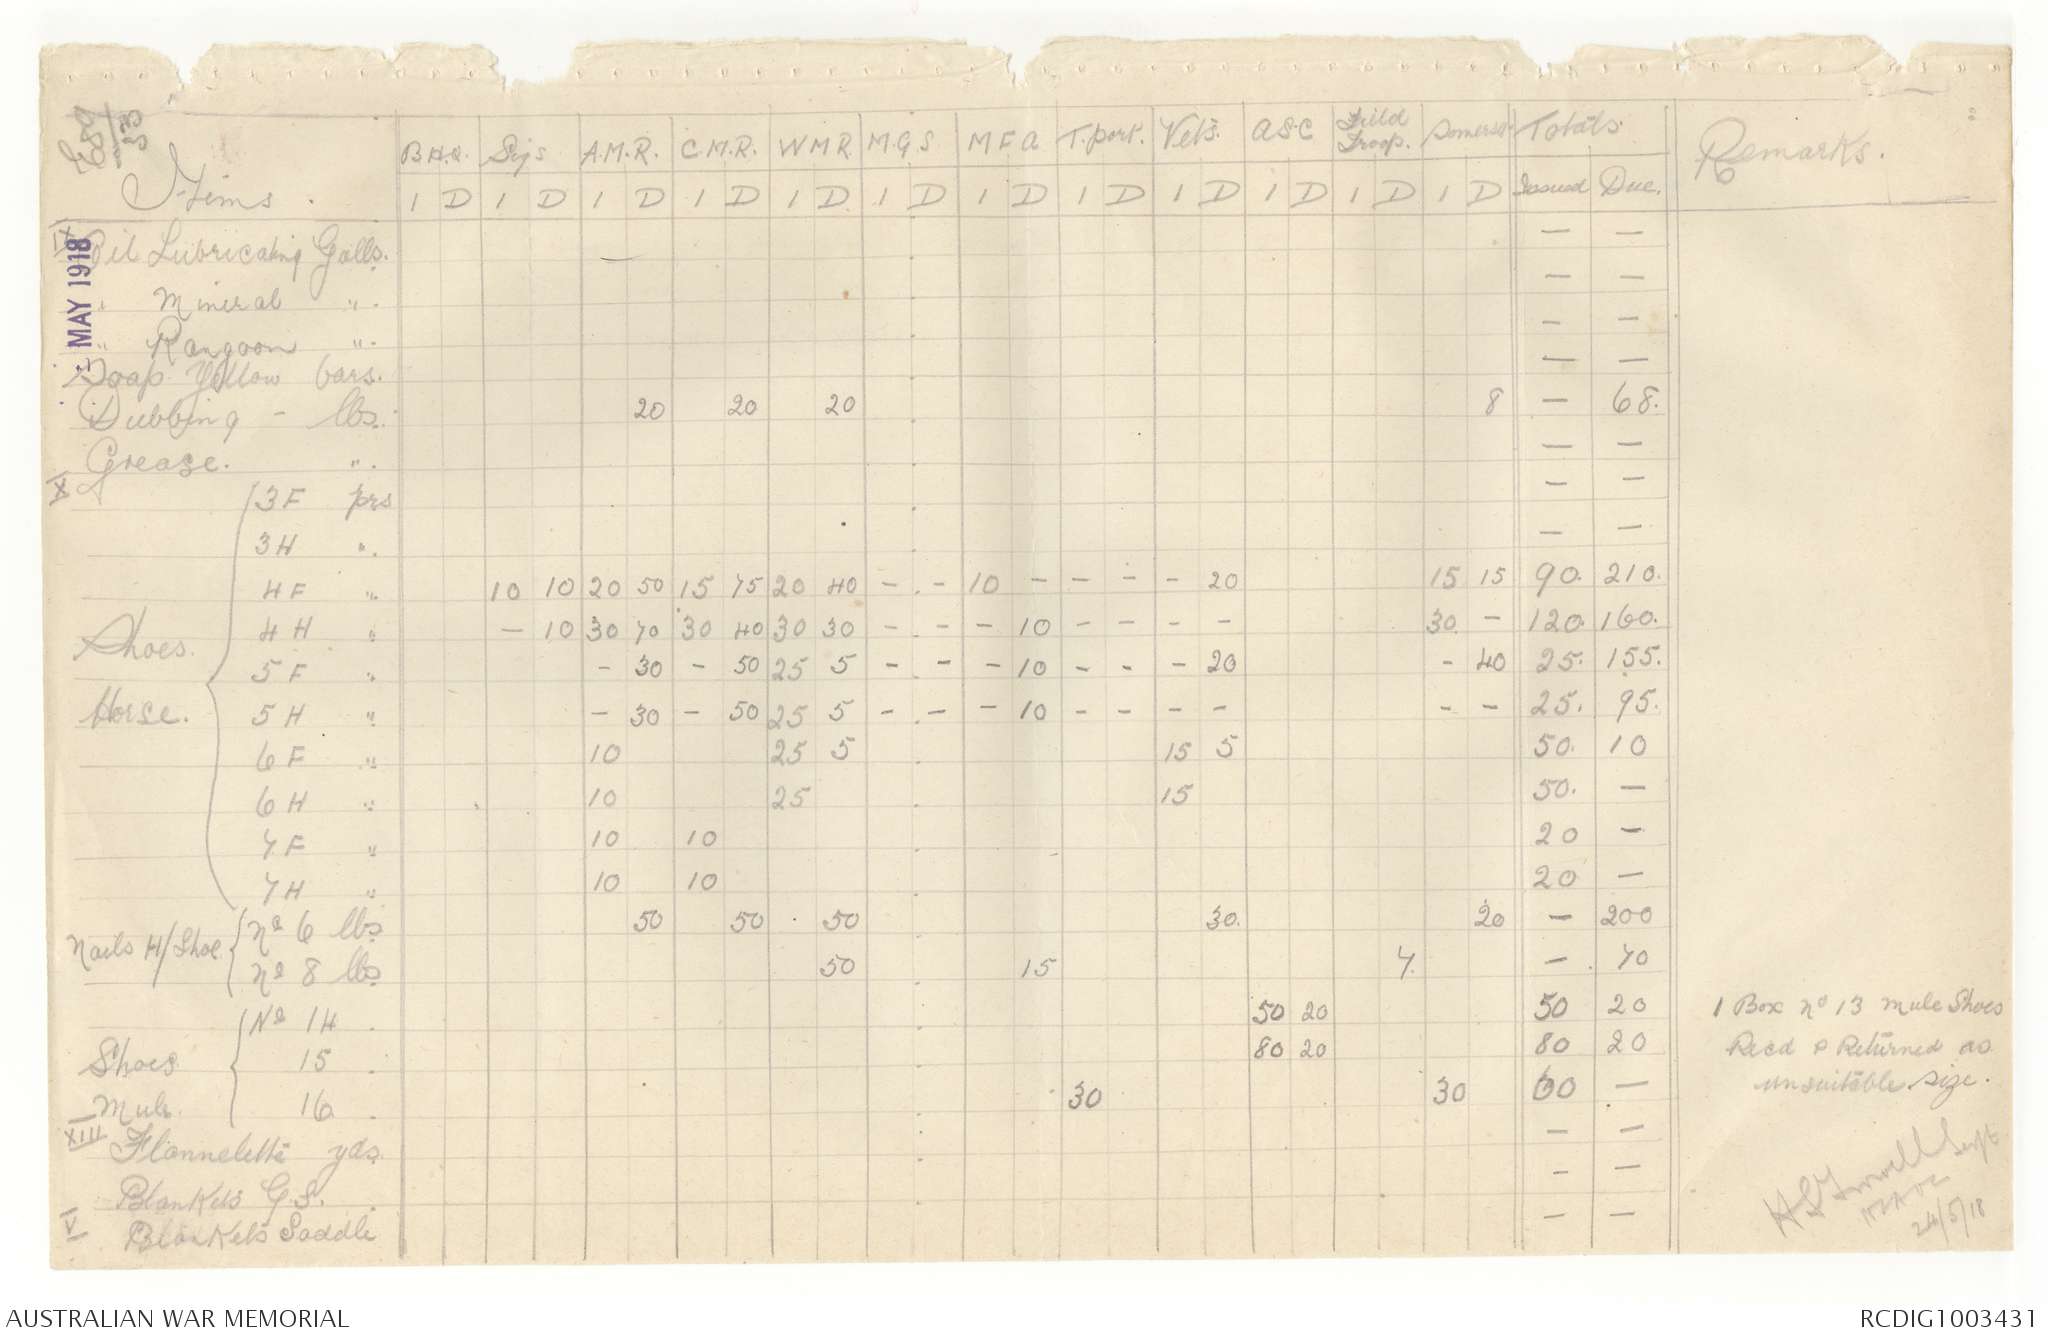 E89
53
MAY 1918
Items. B.H.Q. Sigs A.M.R. C.M.R. W.M.R. M.G.S M F A T.port. Vets. A.S.C Field Troop. Somerset Totals. Remarks.
1 D 1 D 1 D 1 D 1 D 1 D 1 D 1 D 1 D 1 D 1 D 1 D Issued Due.
IX
Oil Lubricating Galls. — —
" Mineral " — —
" Rangoon " — —
Soap Yellow bars. — —
Dubbing - lbs. 20 20 20 8 — 68.
Grease. " — —
X
Shoes. Horse.
3 F prs — —
3 H " — —
4 F " 10 10 20 50 15 75 20 40 - - 10 - - - - 20 15 15 90. 210.
4 H " - 10 30 70 30 40 30 30 - - - 10 - - - - 30 - 120. 160.
5 F " - 30 - 50 25 5 - - - 10 - - - 20 - 40 25. 155.
5 H " - 30 - 50 25 5 - - - 10 - - - - - - 25. 95.
6 F " 10 25 5 15 5 50. 10
6 H " 10 25 15 50. —
7 F " 10 10 20 —
7 H " 10 10 20 —
Nails H/Shoe
No 6 lbs 50 50 50 30. 20 — 200
No 8 lbs 50 15 7. — 70
Shoes Mule.
No 14 50 20 50 20
15 80 20 80 20
16 30 30 60 —
1 Box No 13 Mule Shoes
Recd & Returned as
unsuitable size.
XIII
Flannelette yds. — —
Blankets G.S. — —
V
Blankets Saddle — —
Sergt
24/5/18
AUSTRALIAN WAR MEMORIAL
RCDIG1003431